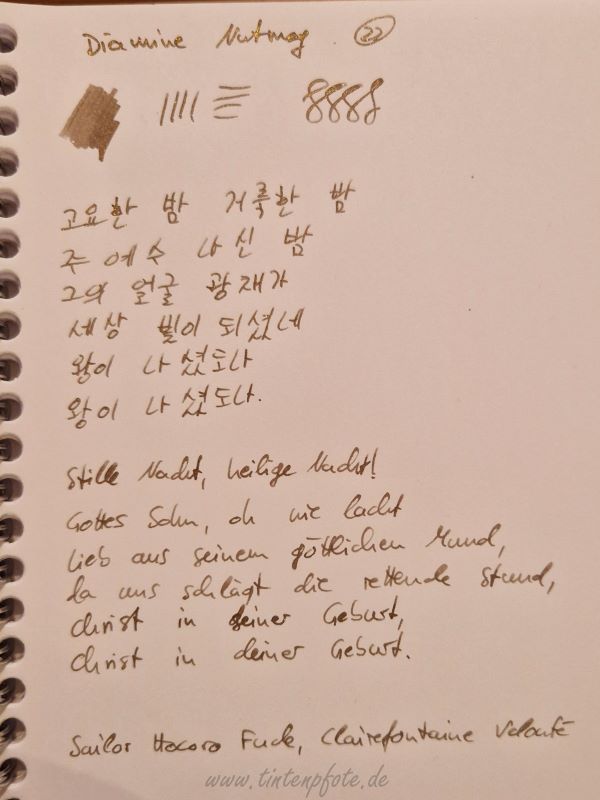 Diamine Nutmeg 22
고요한 밤 거룩한 밤
주 예수 나신 밤
그의 얼굴 광재가
세상 빛이 되셨네
왕이 나셨도다
왕이 나셨도다.
Stille Nacht, heilige Nacht!
Gottes Sohn, oh wie lacht
Lieb aus seinem göttlichen Mund,
da uns schlägt die rettende Stund,
Christ in deiner Geburt,
Christ in deiner Geburt.
Sailor Hocoro Fude, Clairefontaine Velouté
www.tintenpfote.de